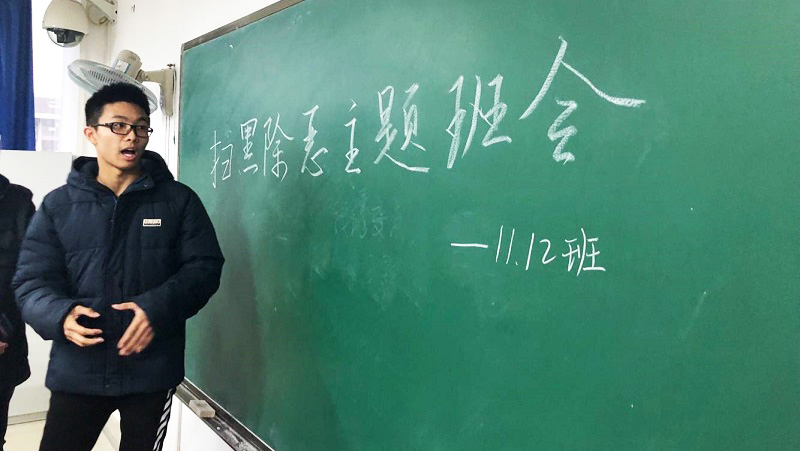 扫黑除恶主题班会
—11.12班